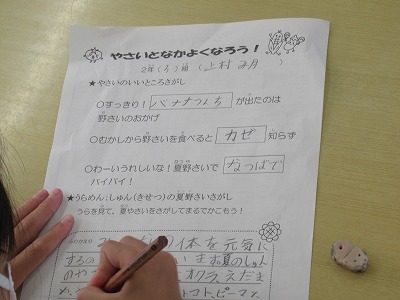 やさいとなかよくなろう！
2年（ろ）組（上村 み月）
★やさいのいいところさがし
○すっきり！バナナうんちが出たのは
野さいのおかげ
○むかしから野さいを食べるとカゼ知らず
○わーいうれしいな！夏野さいでなつばて
バイバイ！
★うらめん：しゅん（きせつ）の夏野さいさがし
うらを見て、夏やさいをさがしてまるでかこもう！
体を元気に
する
のや オクラ、えだま
トマト、ピーマン